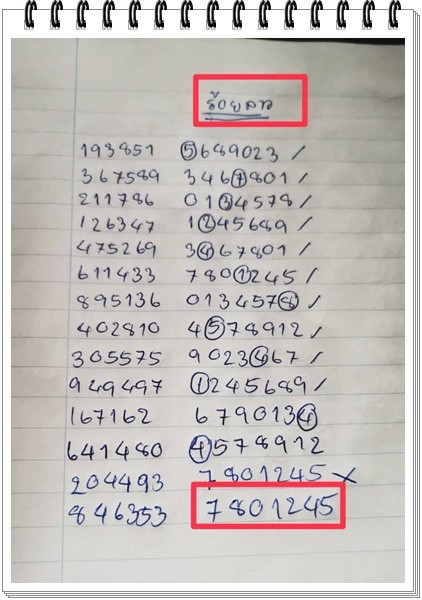 ร้อยลาง
193851 5689023 /
367589 3467801 /
211786 0134578 /
126347 1245689 /
475269 3467801 /
611433 7801245 /
895136 0134578 /
402810 4578912 /
305575 9023467 /
949497 1245689 /
167162 6790134
641480 4578912
204493 7801245 ×
846353 7801245